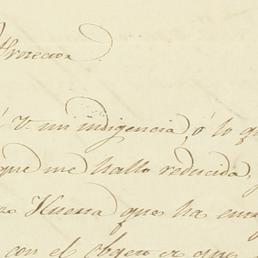 á V. mi indigencia, ó lo q
que me hallo reducida,
Guerra que ha
con el obgeto de que